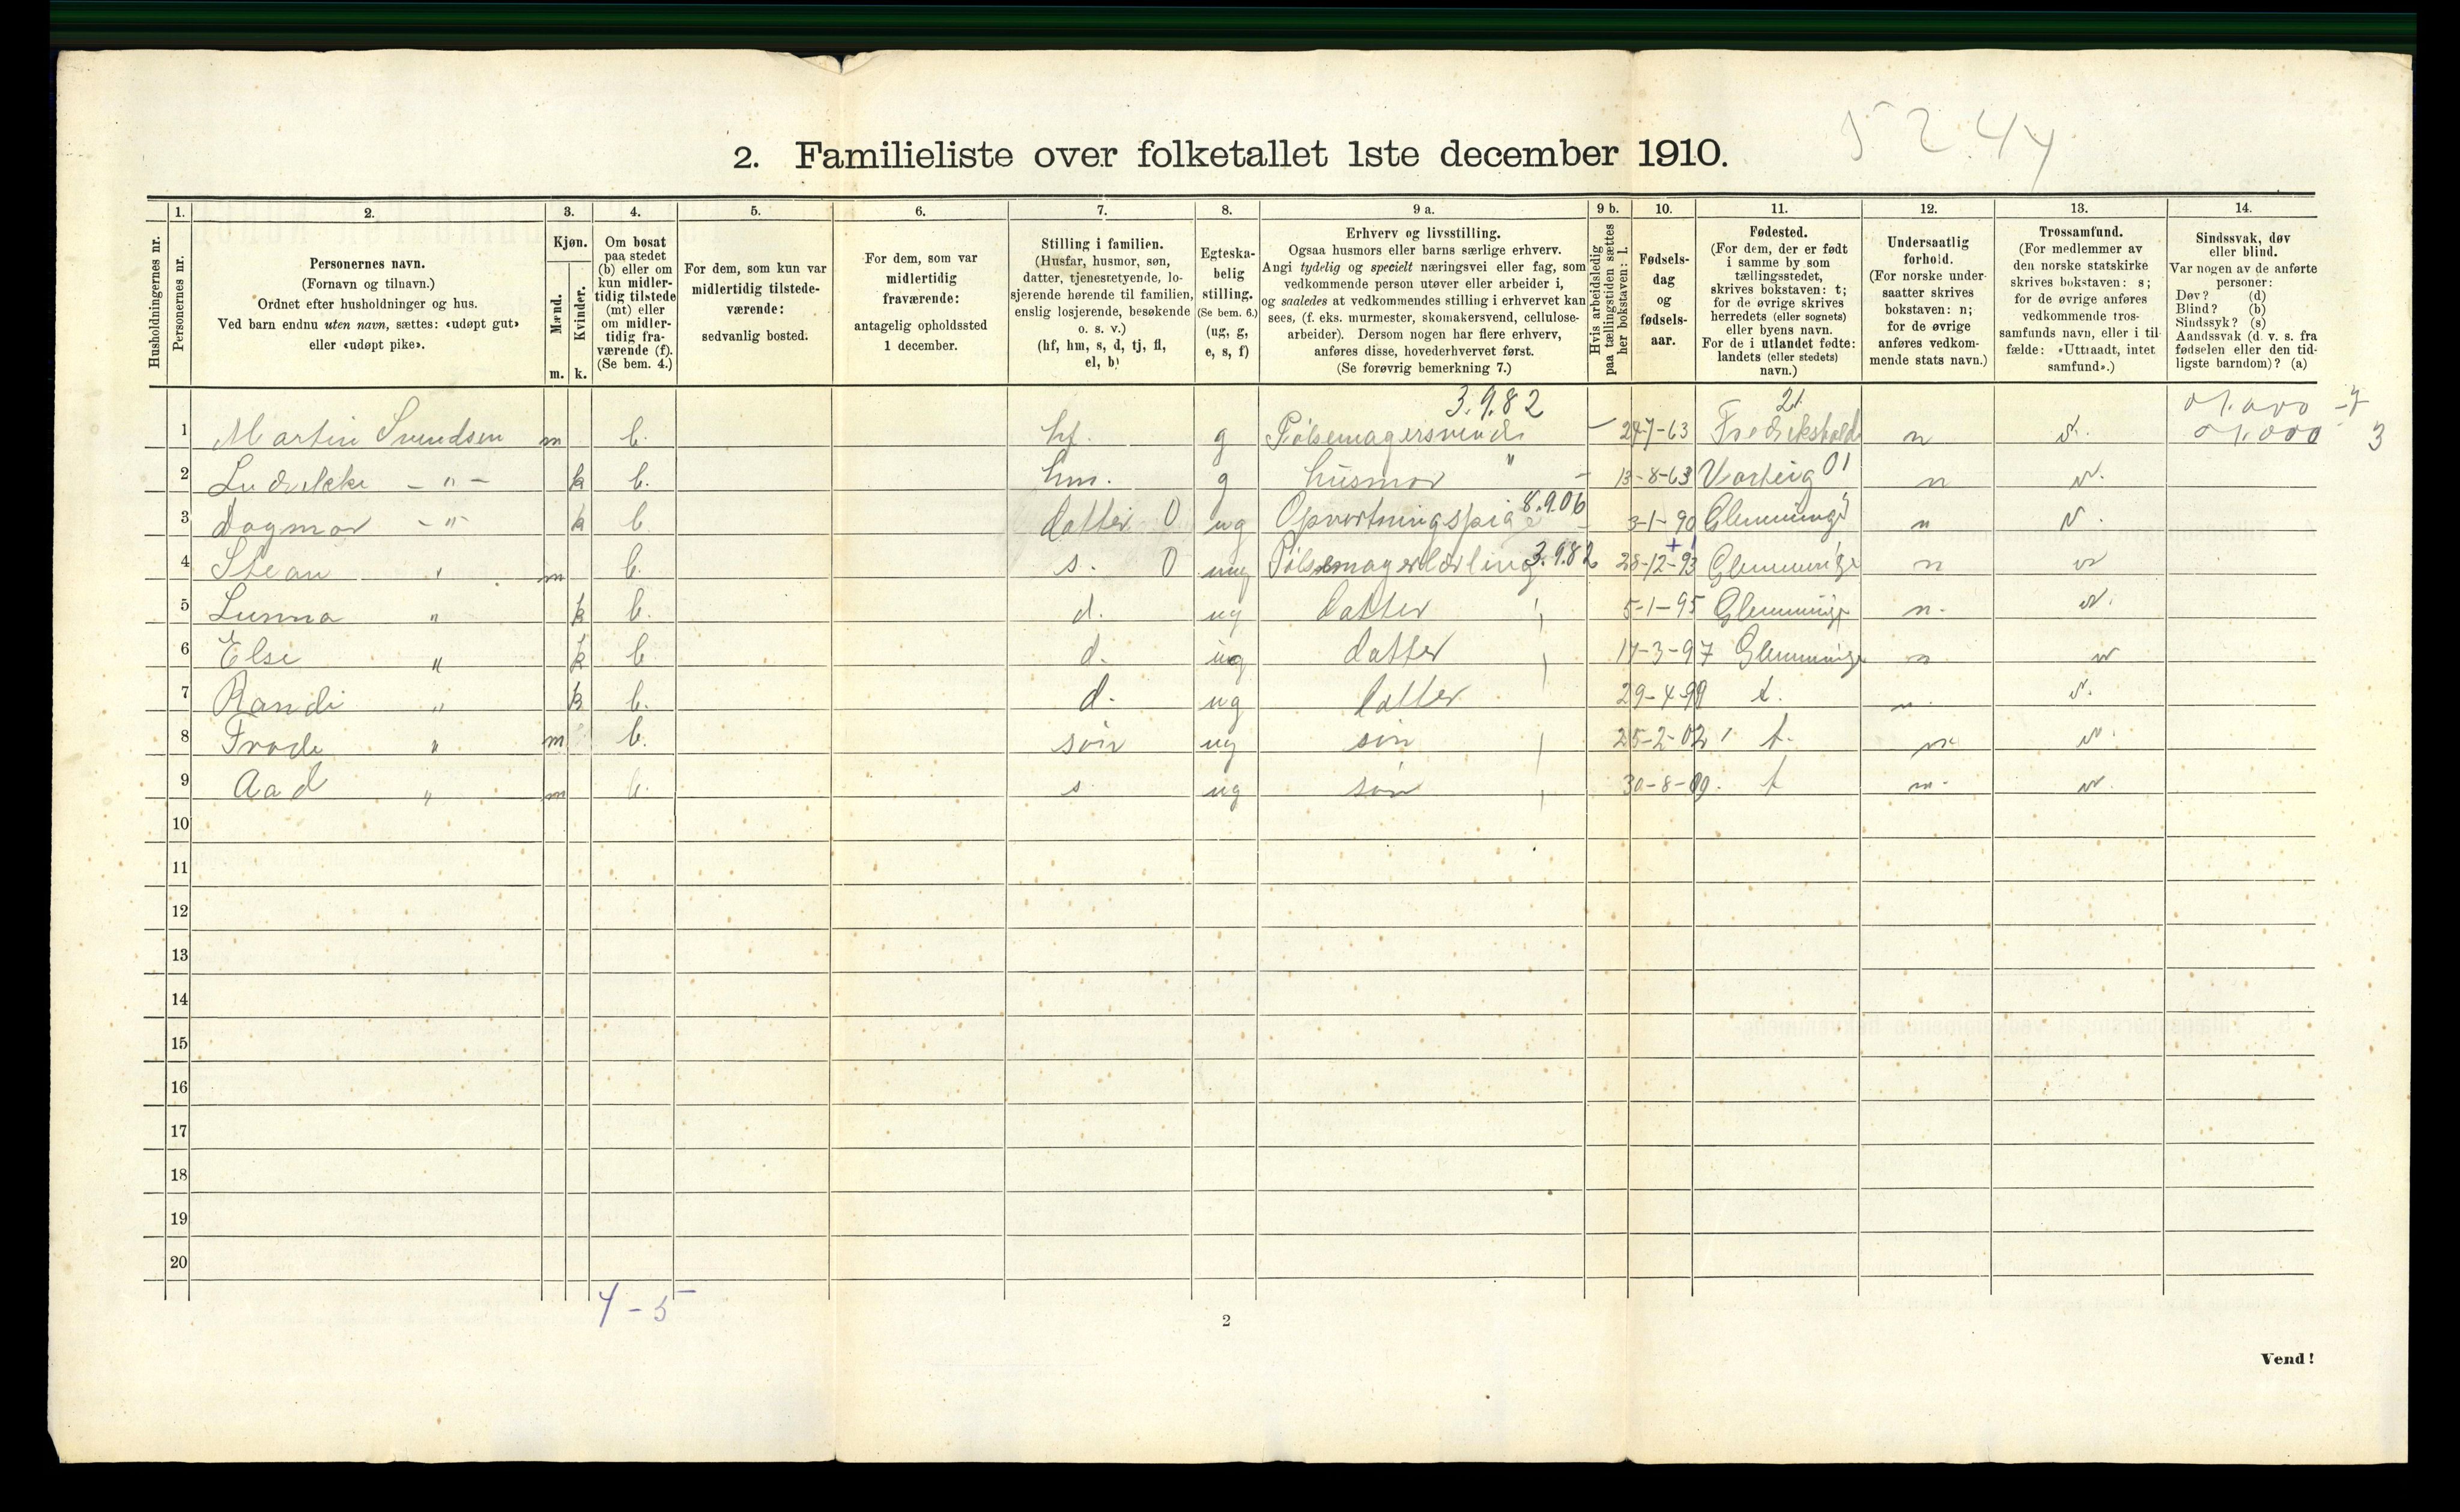 5244
2. Familieliste over folketallet 1ste december 1910.
Husholdningernes nr.
1. Personernes nr.
2. Personernes navn. (Fornavn og tilnavn.) Ordnet efter husholdninger og hus. Ved barn endnu uten navn, sættes: «udøpt gut» eller «udøpt pike».
3. Kjøn. Mænd. m. Kvinder. k.
4. Om bosat paa stedet (b) eller om kun midlertidig tilstede (mt) eller om midlertidig fraværende (f). (Se bem. 4.)
5. For dem, som kun var midlertidig tilstedeværende: sedvanlig bosted.
6. For dem, som var midlertidig fraværende: antagelig opholdssted 1 december.
7. Stilling i familien. (Husfar, husmor, søn, datter, tjenestetyende, losjerende hørende til familien, enslig losjerende, besøkende o. s. v.) (hf, hm, s, d, tj, fl, el, b)
8. Egteskabelig stilling. (Se bem. 6.) (ug, g, e, s, f)
9 a. Erhverv og livsstilling. Ogsaa husmors eller barns særlige erhverv. Angi tydelig og specielt næringsvei eller fag, som vedkommende person utøver eller arbeider i, og saaledes at vedkommendes stilling i erhvervet kan sees, (f. eks. murmester, skomakersvend, cellulosearbeider). Dersom nogen har flere erhverv, anføres disse, hovederhvervet først. (Se forøvrig bemerkning 7.)
9 b. Hvis arbeidsledig paa tællingstiden sættes her bokstaven: l.
10. Fødselsdag og fødselsaar.
11. Fødested. (For dem, der er født i samme by som tællingsstedet, skrives bokstaven: t; for de øvrige skrives herredets (eller sognets) eller byens navn. For de i utlandet fødte: landets (eller stedets) navn.)
12. Undersaatlig forhold. (For norske undersaatter skrives bokstaven: n; for de øvrige anføres vedkommende stats navn.)
13. Trossamfund. (For medlemmer av den norske statskirke skrives bokstaven: s; for de øvrige anføres vedkommende trossamfunds navn, eller i tilfælde: «Uttraadt, intet samfund».)
14. Sindssvak, døv eller blind. Var nogen av de anførte personer: Døv? (d) Blind? (b) Sindssyk? (s) Aandssvak (d. v. s. fra fødselen eller den tidligste barndom)? (a)
3.9.82 21
1 Martin Svendsen m b. hf. g Pølsemagersvend - 24-7-63 Fredrikshald n s.
2 Ludvikke - " - k b. hm. g husmor " - 13-8-63 Varteig 01 n s.
3 Dagmar - " - k b datter 0 ug Opvartningspige 8.9.06 - 3-1-90 Glemminge n s.
4 Stean " m b. s. 0 ug Pølsemagerlærling 3.9.82 28-12-93 Glemminge n s
5 Lunna " k b. d. ug datter 5-1-95 Glemminge n. s.
6 Else " k b d. ug datter 17-3-97 Glemminge n s
7 Randi " k b. d. ug datter 29-4-99 t. n s.
8 Frode " m b. søn ug søn 25-2-02 t. n s.
9 Aad " m b. s ug søn 30-8-09. t n s.
10
11
12
13
14
15
16
17
18
19
20
4-5
2
Vend!